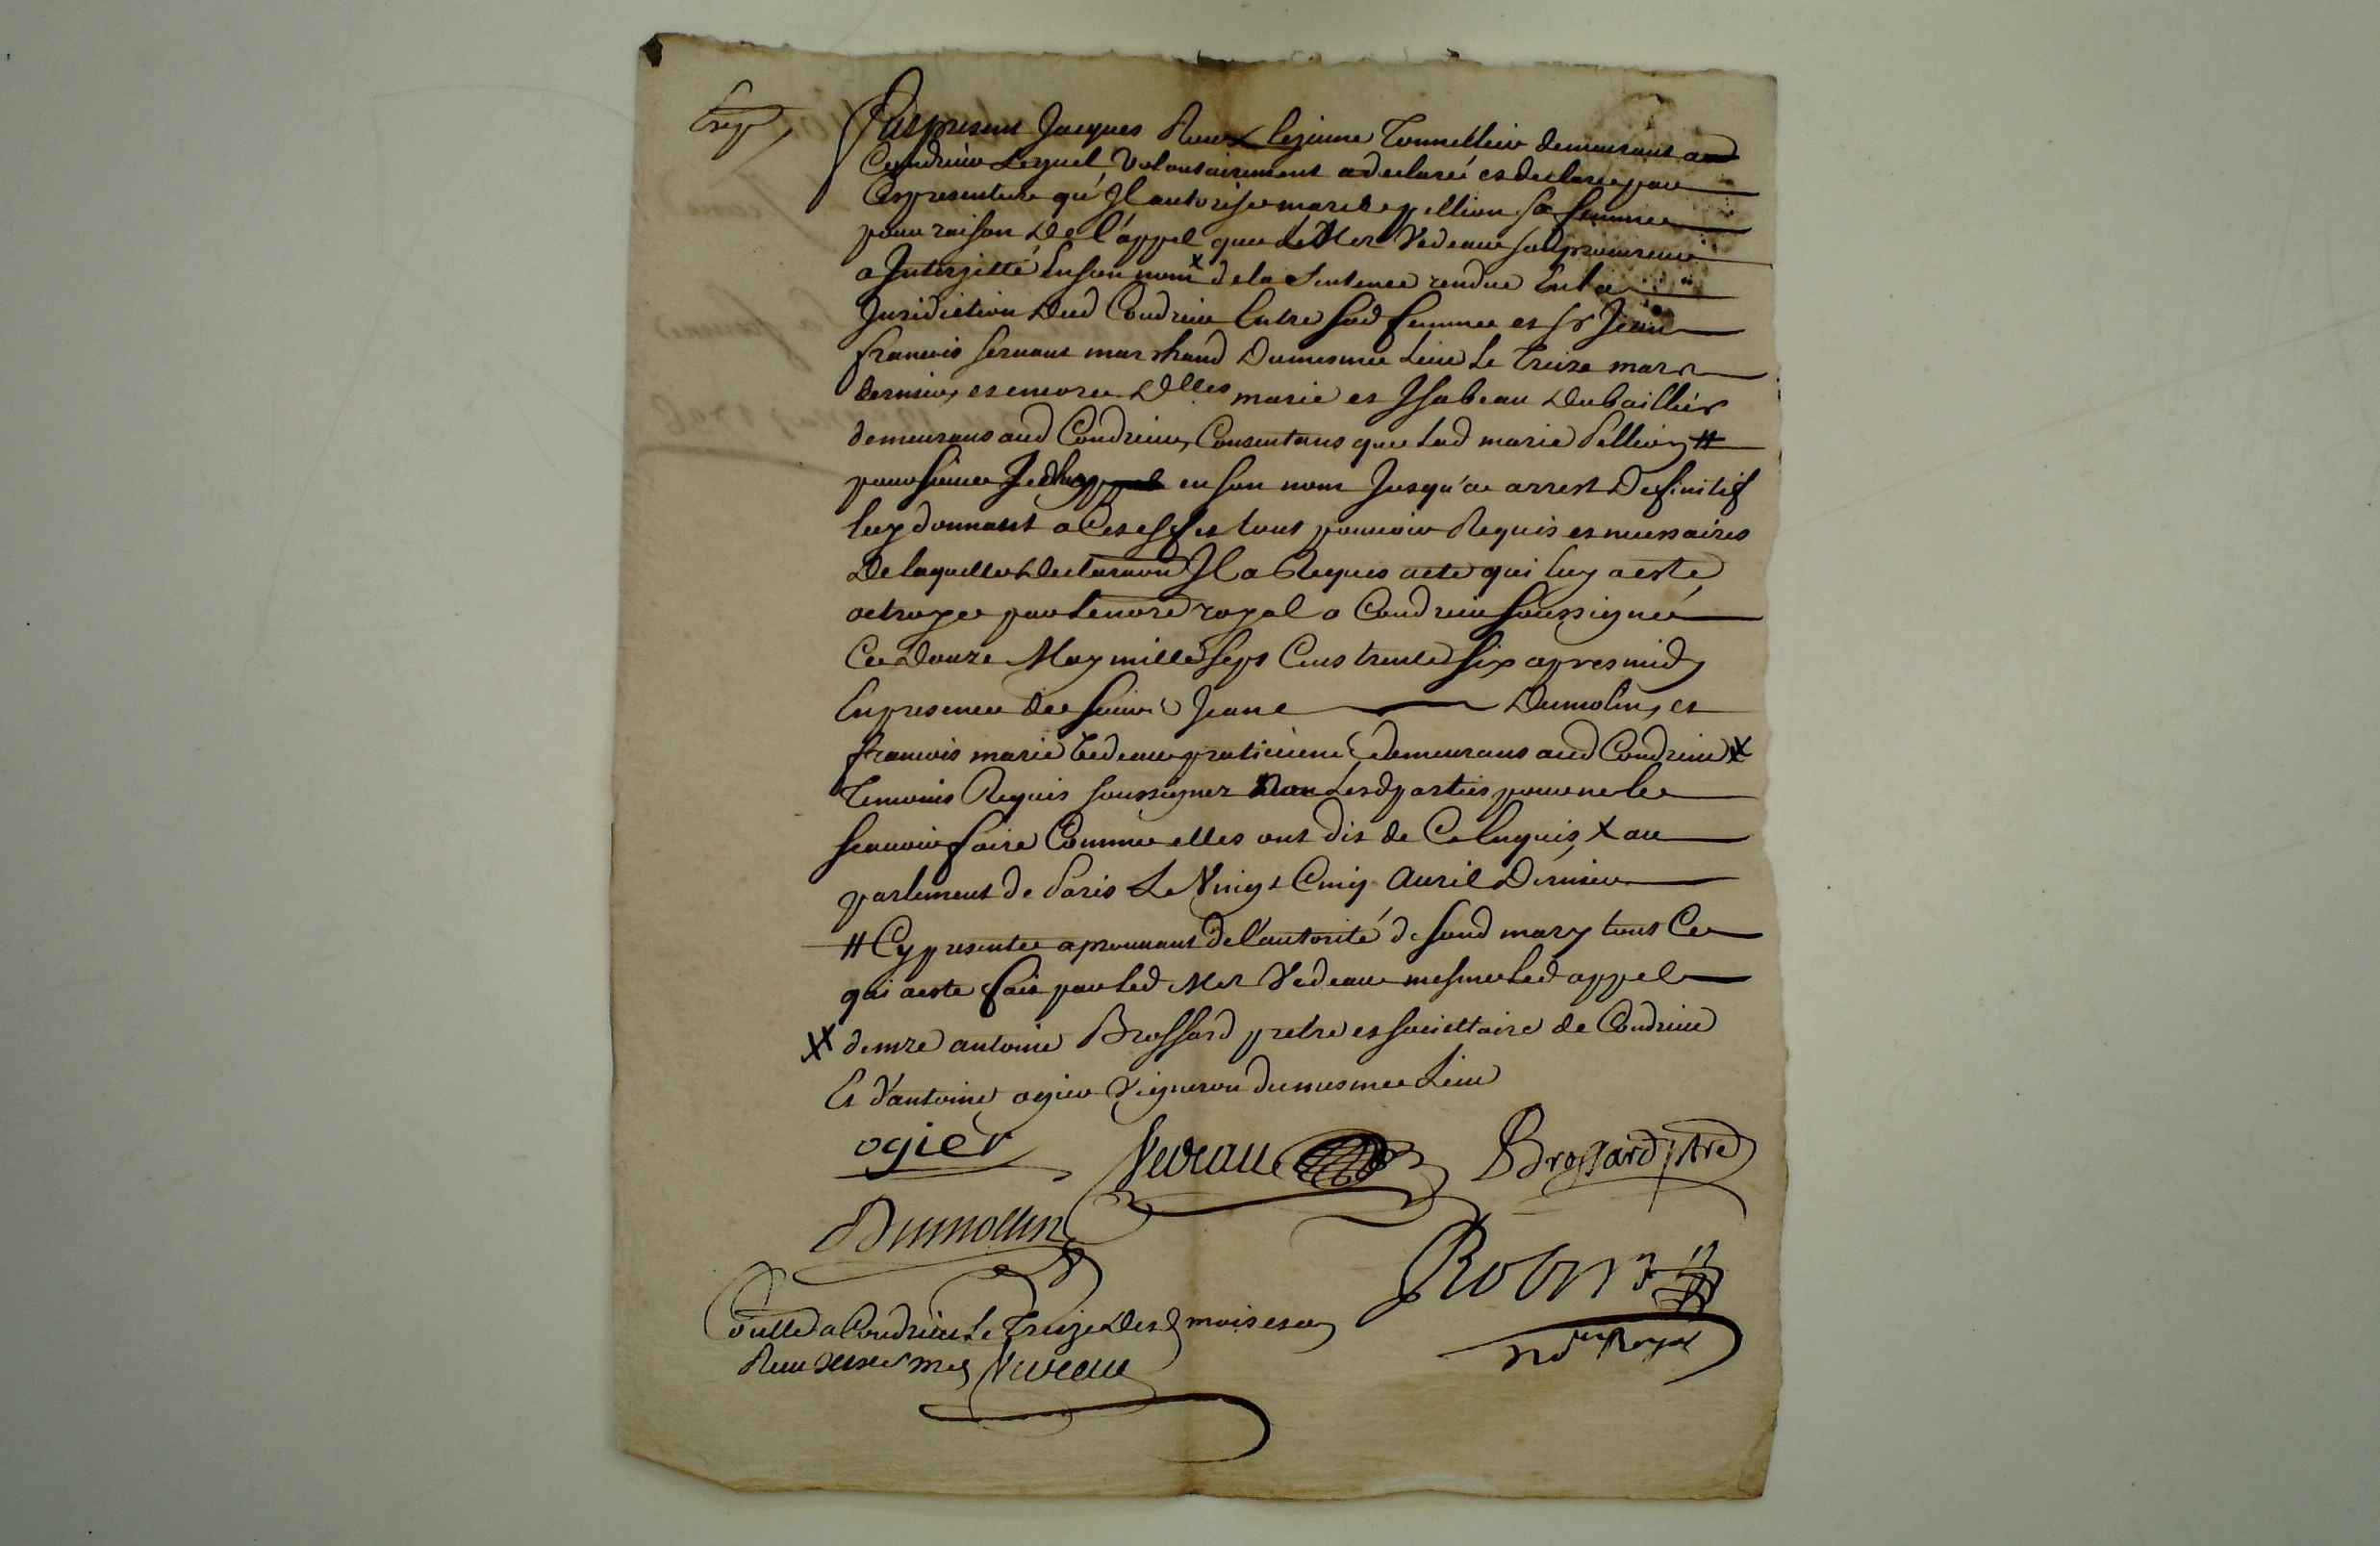 Fut present Jacques Roux le jeune Tonnellier demeurant a
Condrieu Lequel volontairement a declaré et declare par
Ces presentes qu'Il autorise marie pellion sa femme
pour raison De l'appel que Le Mer Vedeau son procureur
a Interjetté En son nom x de la Sentence rendue En la
Jurisdiction Dud Condrieu Entre sad femme et sr Jean
francois servant marchand Du mesme Lieu Le Treize mars
dernier, et encore Dlles marie et Isabeau Dubaillier
demeurans aud Condrieu, Consentans que lad marie Pellion #
poursuive en son nom Jusqu'a arrest Definitif
luy donnant a Cet effet tout pouvoir Requis et necessaires
De laquelle Declaraon Il a Requis acte qui luy a esté
octroyé par le nore royal a Condrieu soussigné
Ce Douze May mille sept Cens trente six apres midy
En presence de sieur Jean Dumolin, et
francois marie Vedeau praticiens demeurans aud Condrieu XX
Temoins Requis soussignez Non Lesd parties pour ne le
scavoir faire Comme elles ont dit de Ce Enquis, x au
parlement de Paris Le Vingt Cinq Avril Dernier
# Cy presente aprouvant de l'autorité de sond mary tout Ce
qui a esté fait par led Mer Vedeau mesme Led appel
XX de mre antoine Brossard pretre et societtaire de Condrieu
Et d'antoine ogier Vigneron du mesme Lieu
ogier Vedeau Brossard ptre
Dumolin
Robin
Coullé a Condrieu Le Treize Desd mois et an
Receu Vedeau
nore Royal